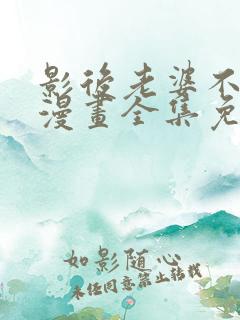 影後老婆不
漫畫全集免
如影随心
未经同意禁止转载